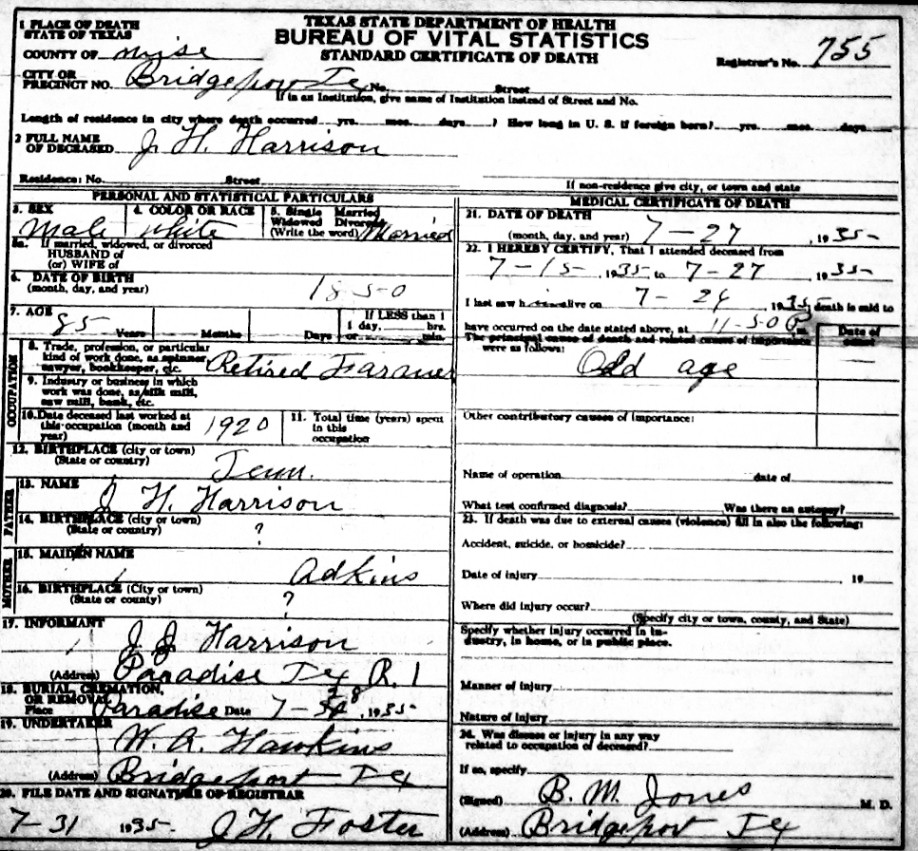 TEXAS STATE DEPARTMENT OF HEALTH
BUREAU OF VITAL STATISTICS
STANDARD CERTIFICATE OF DEATH
Registrar's No. 755
1 PLACE OF DEATH
STATE OF TEXAS
COUNTY OF Wise
CITY OR PRECINCT NO. Bridgeport Tex No. Street
If in an Institution, give name of Institution instead of Street and No.
Length of residence in city where death occurred yrs. mos. days ? How long in U. S. if foreign born? yrs. mos. days
2 FULL NAME OF DECEASED J. H. Harrison
Residence: No. Street
If non-residence give city, or town and state
PERSONAL AND STATISTICAL PARTICULARS
3. SEX Male
4. COLOR OR RACE White
5. Single Married Widowed Divorced (Write the word) Married
5a. If married, widowed, or divorced
HUSBAND of
(or) WIFE of
6. DATE OF BIRTH
(month, day, and year) 1850
7. AGE 85 Years Months Days If LESS than 1
1 day, hrs.
or min.
OCCUPATION
8. Trade, profession, or particular
kind of work done, as spinner,
sawyer, bookkeeper, etc. Retired Farmer
9. Industry or business in which
work was done, as silk mill,
saw mill, bank, etc.
10. Date deceased last worked at
this occupation (month and
year) 1920
11. Total time (years) spent
in this
occupation
12. BIRTHPLACE (city or town)
(State or country) Tenn.
FATHER
13. NAME J H. Harrison
14. BIRTHPLACE (city or town)
(State or country) ?
MOTHER
15. MAIDEN NAME Adkins
16. BIRTHPLACE (City or town)
(State or country) ?
17. INFORMANT J J Harrison
(Address) Paradise Tex R. 1
18. BURIAL, CREMATION,
OR REMOVAL
Place Paradise Date 7-28, 1935
19. UNDERTAKER W. A. Hawkins
(Address) Bridgeport Tex
20. FILE DATE AND SIGNATURE OF REGISTRAR
7-31 1935 J H. Foster
MEDICAL CERTIFICATE OF DEATH
21. DATE OF DEATH
(month, day, and year) 7-27, 1935
22. I HEREBY CERTIFY, That I attended deceased from
7-15, 1935 to 7-27, 1935
I last saw him alive on 7-26 1935, death is said to
have occurred on the date stated above, at 11-50 P m.
The principal cause of death and related causes of importance
were as follows:
Date of onset
Old age
Other contributory causes of importance:
Name of operation date of
What test confirmed diagnosis? Was there an autopsy?
23. If death was due to external causes (violence) fill in also the following:
Accident, suicide, or homicide?
Date of injury 19
Where did injury occur?
(Specify city or town, county, and State)
Specify whether injury occurred in in-
dustry, in home, or in public place.
Manner of injury
Nature of injury
24. Was disease or injury in any way
related to occupation of deceased?
If so, specify
(Signed) B. M. Jones M. D.
(Address) Bridgeport Tex